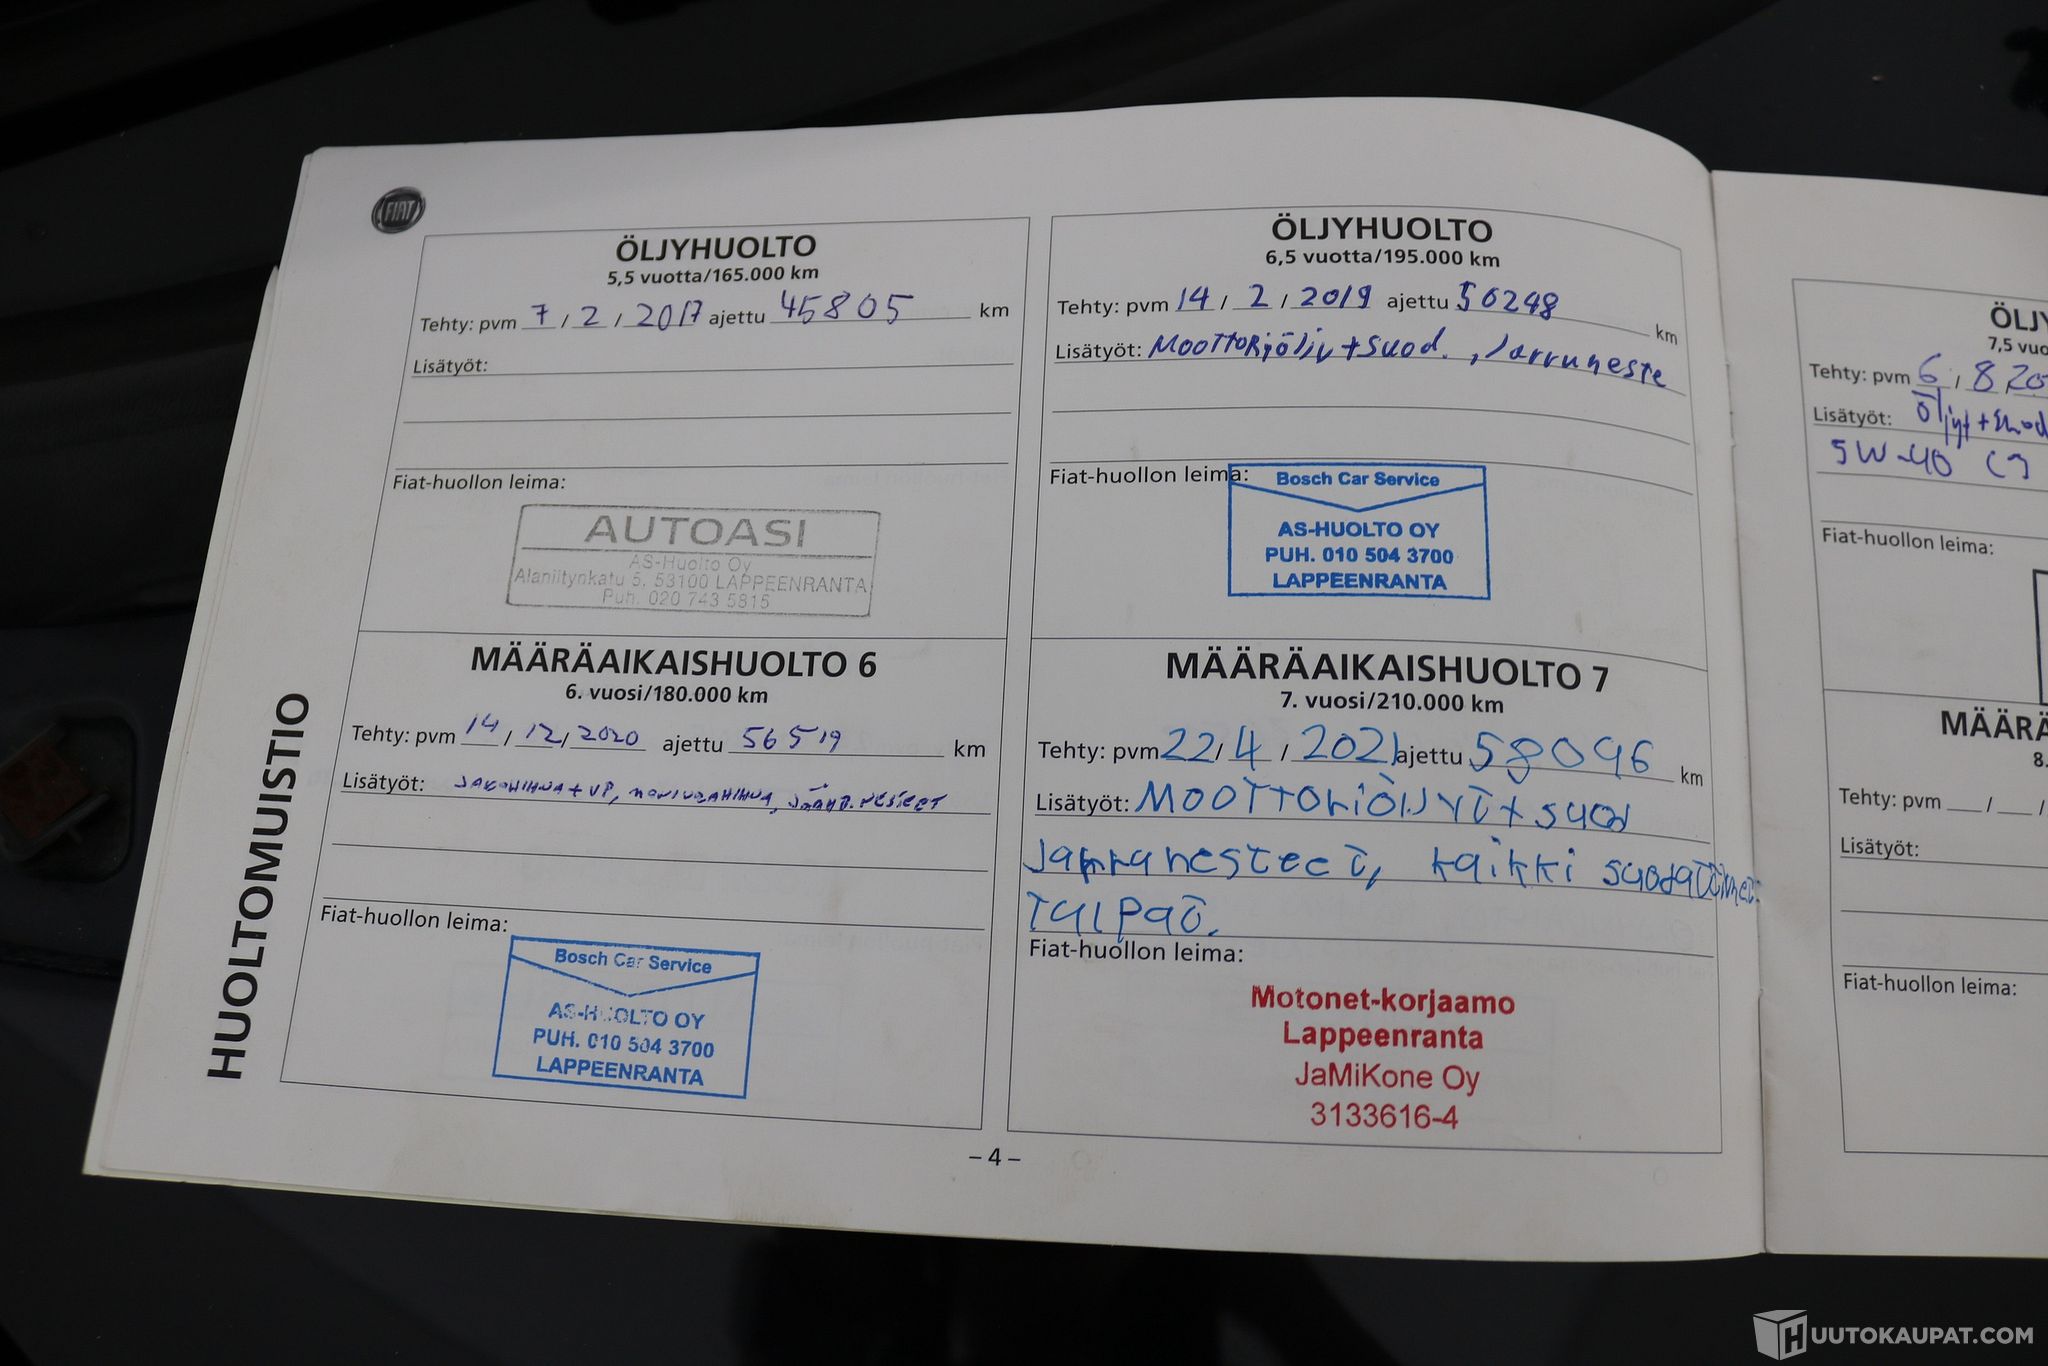 FIAT
HUOLTOMUISTIO
ÖLJYHUOLTO
5,5 vuotta/165.000 km
Tehty: pvm 7 / 2 / 2017 ajettu 45805 km
Lisätyöt:
Fiat-huollon leima:
AUTOASI
AS-Huolto Oy
Alaniitynkatu 5, 53100 LAPPEENRANTA
Puh. 020 743 5815
ÖLJYHUOLTO
6,5 vuotta/195.000 km
Tehty: pvm 14 / 2 / 2019 ajettu 56248 km
Lisätyöt: Moottoriöljy + suod., Jarruneste
Fiat-huollon leima:
Bosch Car Service
AS-HUOLTO OY
PUH. 010 504 3700
LAPPEENRANTA
MÄÄRÄAIKAISHUOLTO 6
6. vuosi/180.000 km
Tehty: pvm 14 / 12 / 2020 ajettu 56519 km
Lisätyöt: JAKOHIHNA + VP, MONIURAHIHNA, JÄÄHD. NESTEET
Fiat-huollon leima:
Bosch Car Service
AS-HUOLTO OY
PUH. 010 504 3700
LAPPEENRANTA
MÄÄRÄAIKAISHUOLTO 7
7. vuosi/210.000 km
Tehty: pvm 22 / 4 / 2021 ajettu 58096 km
Lisätyöt: Moottoriöljyt + suod
Jarrunesteet, kaikki suodattimet
Tulpat.
Fiat-huollon leima:
Motonet-korjaamo
Lappeenranta
JaMiKone Oy
3133616-4
– 4 –
ÖLJY
7,5 vuo
Tehty: pvm 6 / 8 20
Lisätyöt: Öljyt + suod
5W-40 C3
Fiat-huollon leima:
MÄÄRÄ
8.
Tehty: pvm / /
Lisätyöt:
Fiat-huollon leima:
HUUTOKAUPAT.COM